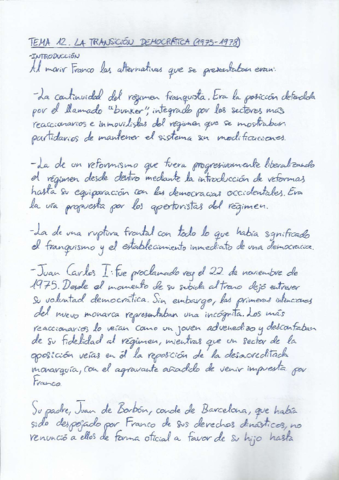 TEMA 12. LA TRANSICIÓN DEMOCRÁTICA (1975-1978)
-INTRODUCCIÓN
Al morir Franco las alternativas que se presentaban eran:
-La continuidad del régimen franquista. Era la posición defendida
por el llamado "bunker", integrado por los sectores más
reaccionarios e inmovilistas del régimen que se mostraban
partidarios de mantener el sistema sin modificaciones.
-La de un reformismo que fuera progresivamente liberalizando
el régimen desde dentro mediante la introducción de reformas
hasta su equiparación con las democracias occidentales. Era
la vía propuesta por los aperturistas del régimen.
-La de una ruptura frontal con todo lo que había significado
el franquismo y el establecimiento inmediato de una democracia.
-Juan Carlos I: fue proclamado rey el 22 de noviembre de
1975. Desde el momento de su subida al trono dejó entrever
su voluntad democrática. Sin embargo, las primeras
del nuevo monarca representaban una incógnita. Los más
reaccionarios lo veían como un joven advenedizo y desconfiaban
de su fidelidad al régimen, mientras que un sector de la
oposición veían en él la reposición de la desacreditada
monarquía, con el agravante añadido de venir impuesta por
Franco.
Su padre, Juan de Borbón, conde de Barcelona, que había
sido despojado por Franco de sus derechos dinásticos, no
renunció a ellos de forma oficial a favor de su hijo hasta